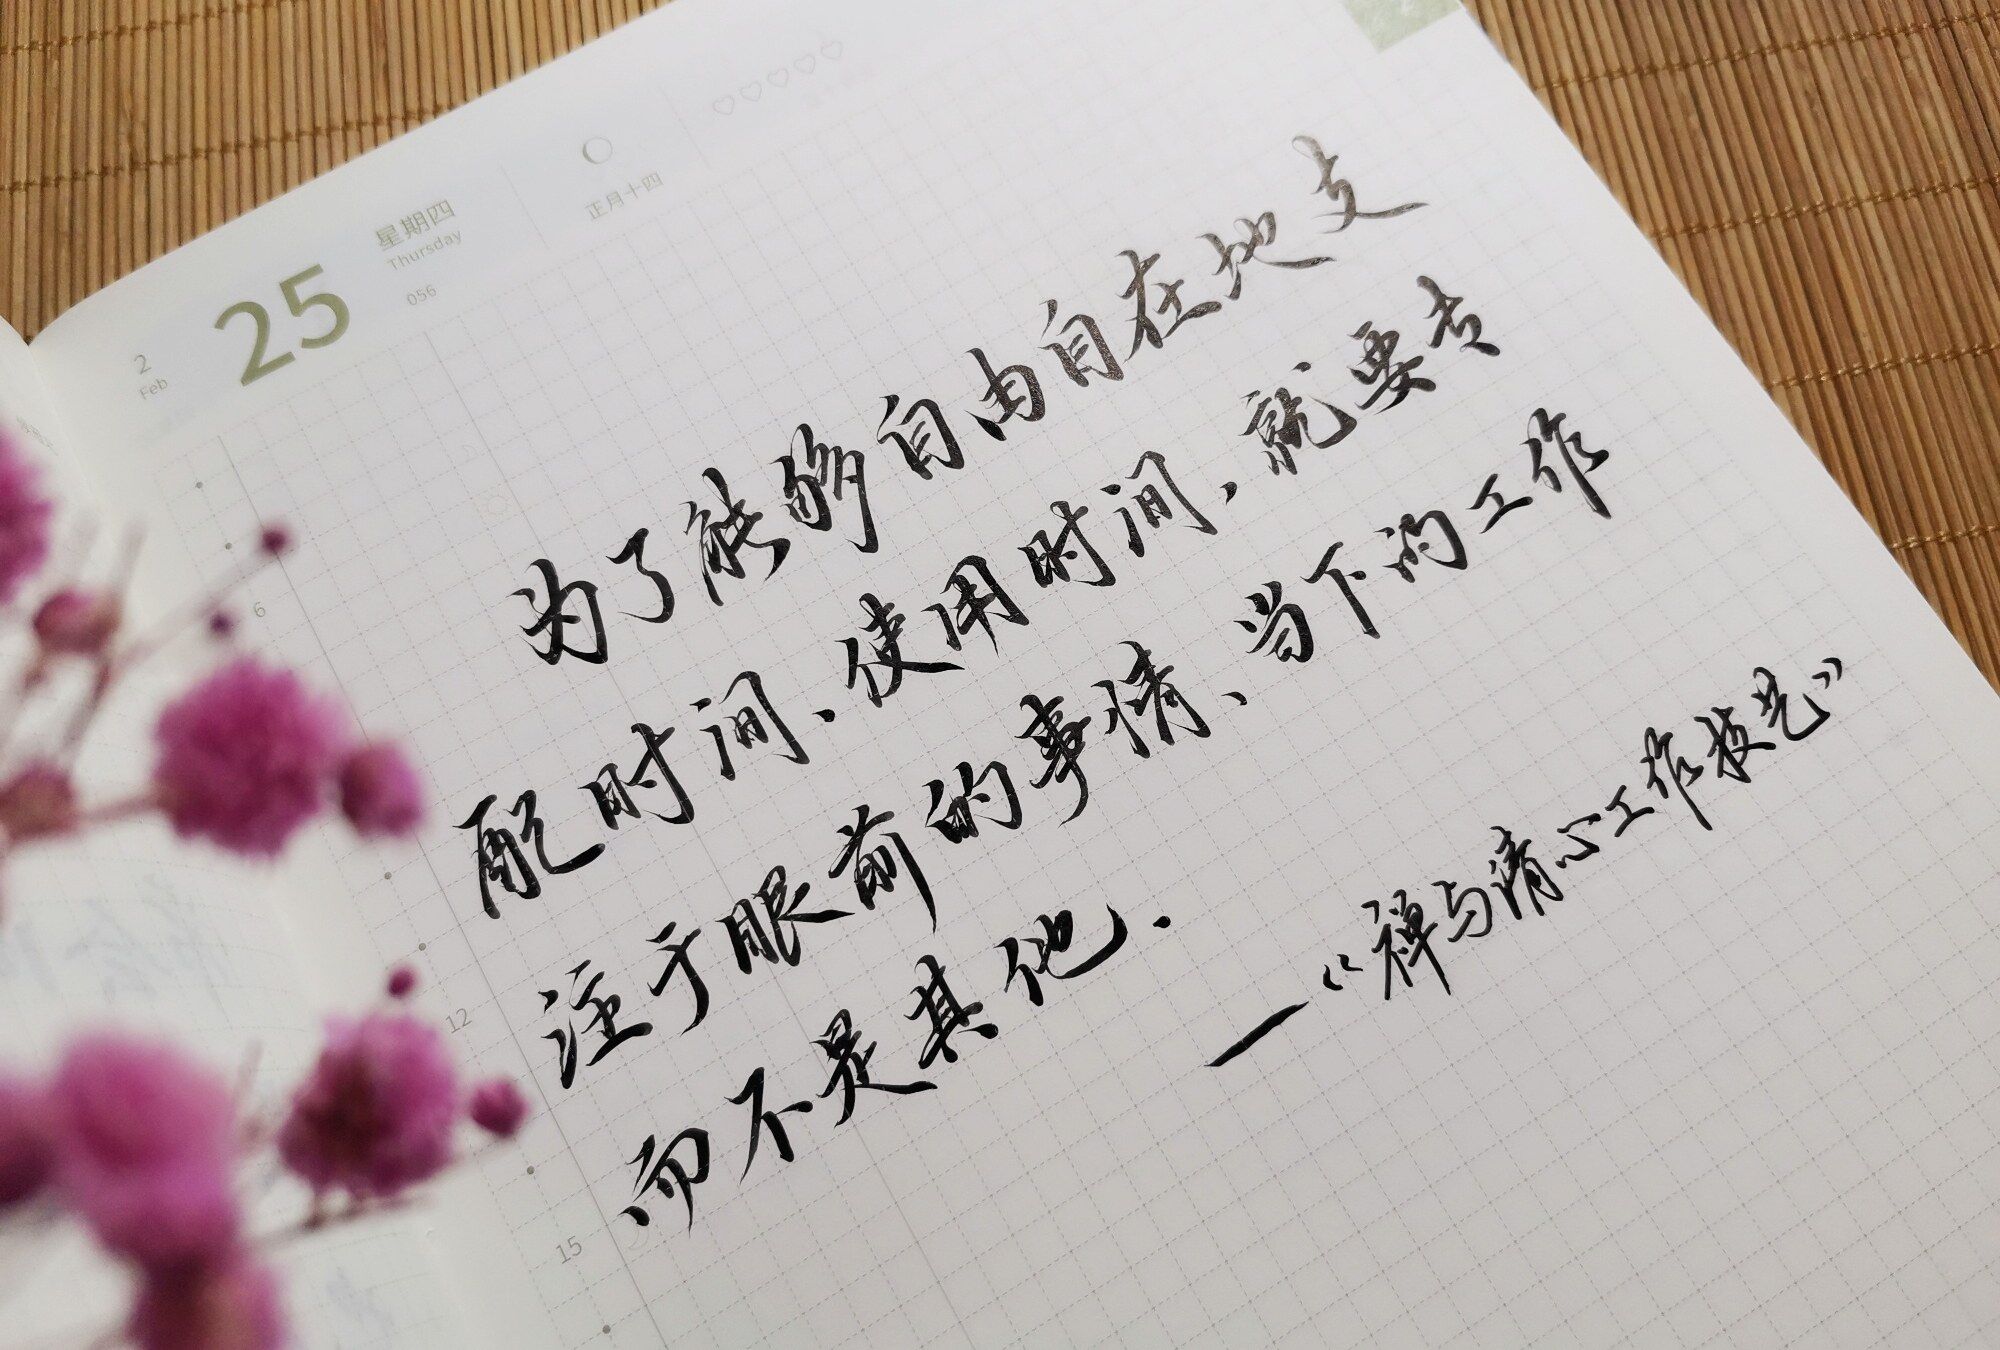 2
Feb
25
星期四
Thursday
056
正月十四
6
12
15
为了能够自由自在地支
配时间、使用时间，就要专
注于眼前的事情、当下的工作
而不是其他.
—《禅与清心工作技艺》